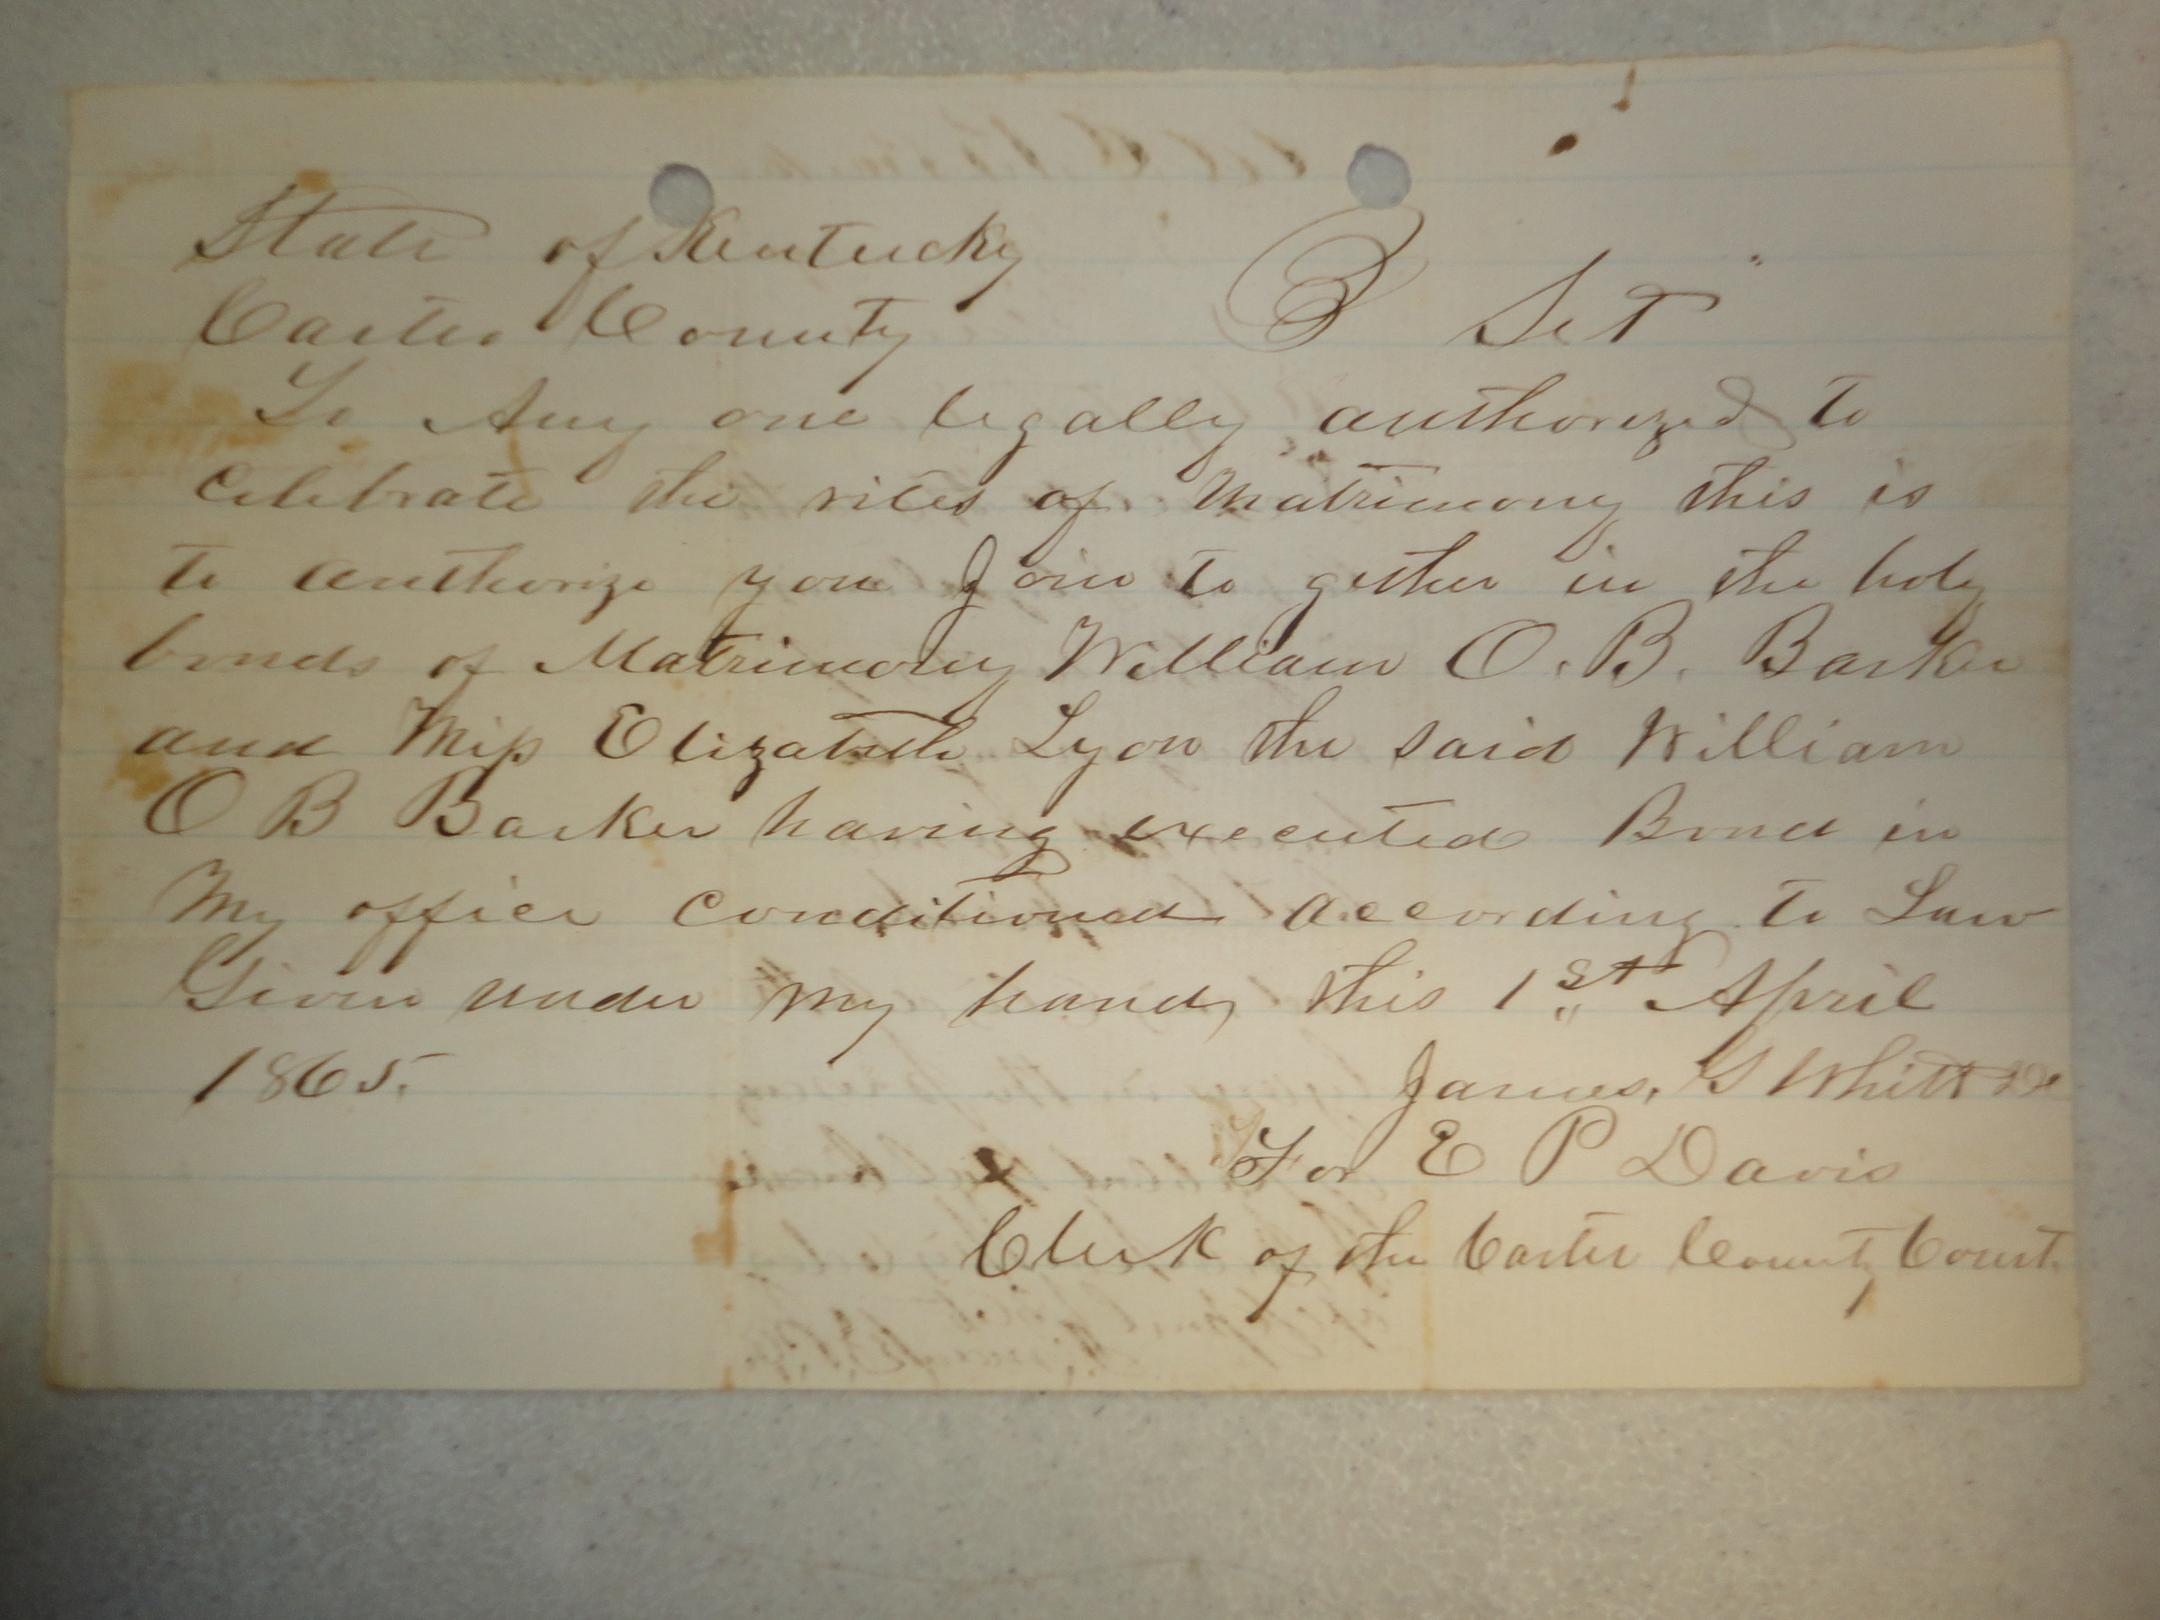 State of Kentucky
Carter County } Sct
To Any one legally authorized to
Celebrate the rites of Matrimony this is
to authorize you Join to gether in the holy
bonds of Matrimony William O. B. Barker
and Miss Elizabeth Lyon the said William
O B Barker having executed Bond in
My office conditioned according to Law
Given under my hand this 1st April
1865.
James, G Whitt DC
For E P Davis
Clerk of the Carter County Court